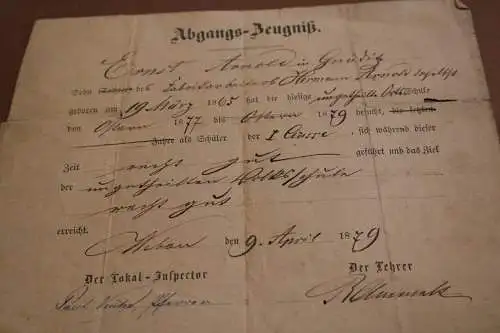 Abgangs-Zeugniß.
Ernst Arnold in Gnaditz
Sohn des Fabrikarbeiters Hermann Arnold daselbst
geboren am 19 März 1865 hat die hiesige ungetheilte Volksschule
von Ostern 1877 bis Ostern 1879 besucht, die letzten
Jahre als Schüler der I Classe, sich während dieser
Zeit recht gut geführt und das Ziel
der ungetheilten Volksschule
recht gut
erreicht.
den 9. April 1879
Der Lokal-Inspector
Der Lehrer
Pfarrer